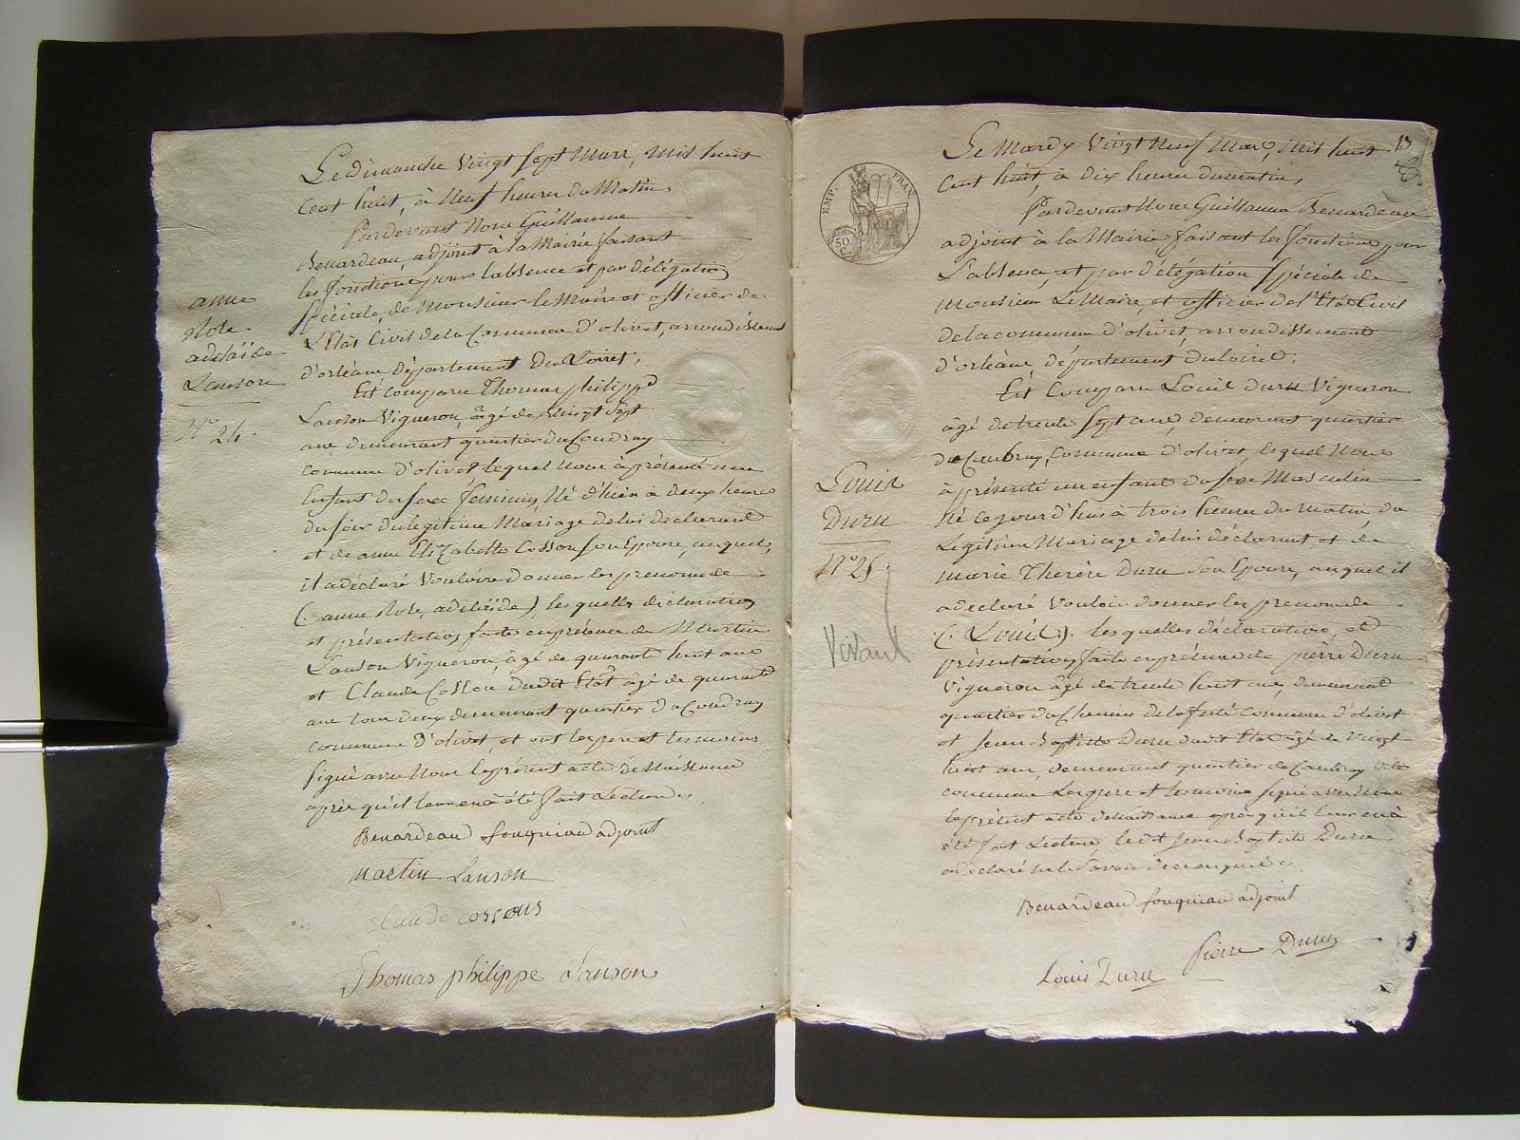 Le dimanche vingt sept Mars, mil huit
cent huit, à Neuf heures du Matin,
Pardevant Nous Guillaume
Benardeau, adjoint à la Mairie faisant
les fonctions pour l'absence et par délégation
spéciale, de Monsieur le Maire et officier de
l'Etat Civil de la Commune d'olivet, arrondissement
d'orléans département du Loiret,
Est comparu Thomas philippe
Lanson Vigneron, âgé de vingt sept
ans demeurant quartier du Coudray
commune d'olivet lequel nous à présenté une
Enfant du sexe féminin, Né d'hier à deux heures
du soir du légitime Mariage de lui déclarant
et de anne Elizabette Cosson son Epouse, auquel
il a déclaré Vouloir donner les prenoms de
(anne Rose, adelaïde) les quelles déclaration
et présentation faites en présence de Martin
Lanson Vigneron, âgé de quarante huit ans
et Claude Cosson dudit Etat âgé de quarante
ans tous deux demeurant quartier du Coudray
commune d'olivet, et ont les pere et temoins
signé avec Nous le présent acte de Naissance
après qu'il leur en à été fait Lecture.
Benardeau fouquiau adjoint
martin Lanson
claude cossons
Thomas philippe Lanson
anne
Rose
adelaïde
Lanson
N.° 24.
13
EMP. FRAN.
50
Le Mardy Vingt Neuf Mars, mil huit
Cent huit, à dix heures du matin,
Pardevant Nous Guillaume Benardeau
adjoint à la Mairie faisant les fonctions pour
L'absence, et par délégation spéciale de
Monsieur Le Maire, et officier de l'Etat Civil
de la commune d'olivet, arrondissement
d'orléans département du Loiret;
Est Comparu Louis Duru Vigneron
âgé de trente Sept ans, demeurant quartier
du Caubray, Commune d'olivet, lequel Nous
à présenté un enfant du sexe Masculin
Né cejourd'hui à trois heures du matin, du
Légitime Mariage de lui déclarant et de
Marie Therèse Duru son Epouse, auquel il
a declaré Vouloir donner les prenoms de
(Louis). les quelles déclaration, et
présentation faites en présence de pierre Duru
Vigneron âgé de trente huit ans, demeurant
quartier du Chemin de la ferté commune d'olivet
et Jean Baptiste Duru dudit Etat âgé de Vingt
huit ans, demeurant quartier du Caubray
commune Les pere et temoins signé avec Nous
le présent acte de Naissance après qu'il leur en à
été fait Lecture, ledit Jean Baptiste Duru
a déclaré ne le savoir de ce enquis.
Benardeau fouquiau adjoint
Pierre Duru
Louis Duru
Louis
Duru
N.° 25.
Vivant